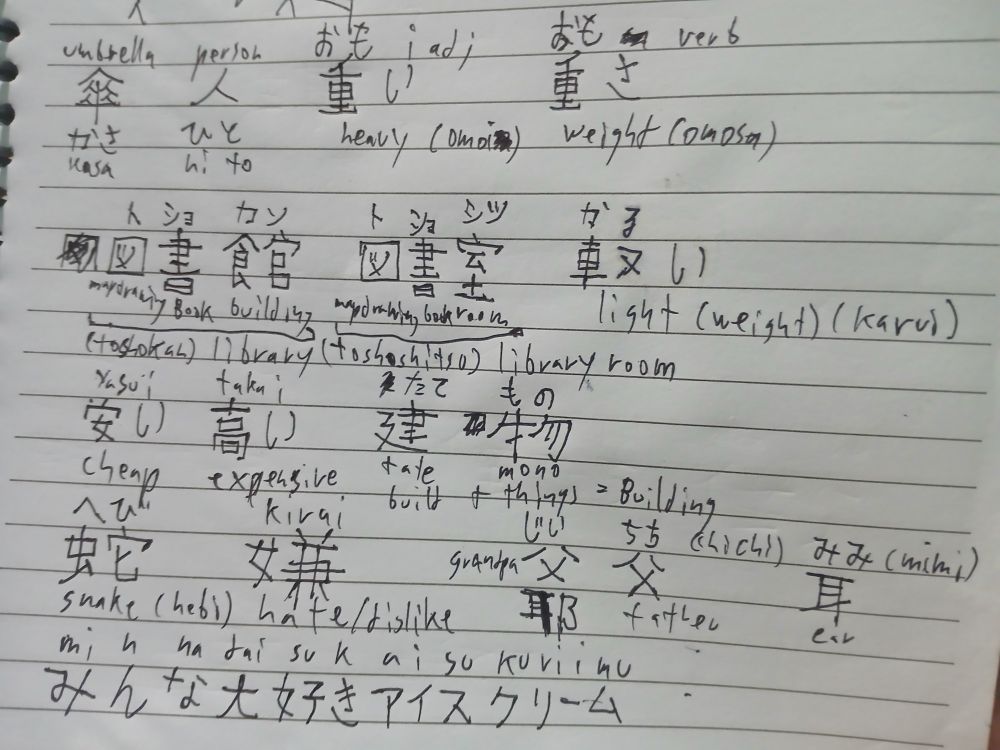 umbrella person おも i adj おも verb
傘 人 重い 重さ
かさ ひと heavy (omoi) weight (omosa)
kasa hi to
ト ショ カン ト ショ シツ かる
図書館 図書室 軽い
mapdrawing Book building mapdrawing book room light (weight) (karui)
(toshokan) library (toshoshitso) library room
yasui takai たて もの
安い 高い 建 物
cheap expensive tate mono
build + things = Building
へび kirai じじ ちち (chichi) みみ (mimi)
蛇 嫌 grandpa 父 父 耳
snake (hebi) hate/dislike 耶 father ear
mi n na dai su k ai su kuriimu
みんな大好きアイスクリーム